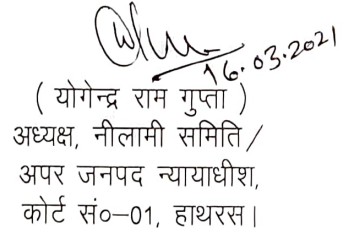 16.03.2021
( योगेन्द्र राम गुप्ता )
अध्यक्ष, नीलामी समिति /
अपर जनपद न्यायाधीश,
कोर्ट सं०–01, हाथरस।